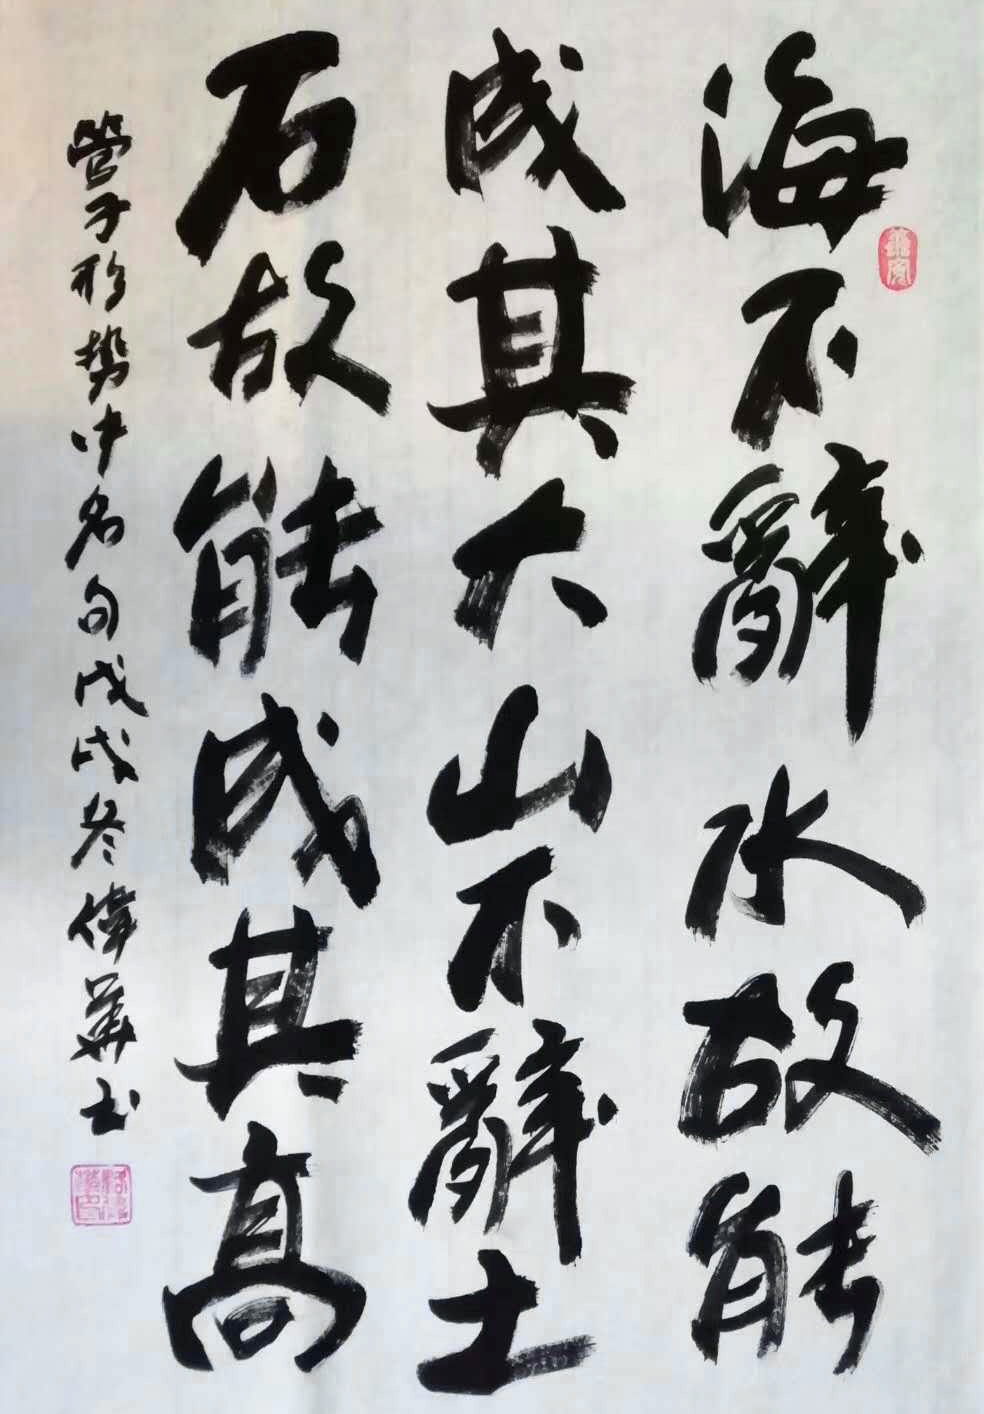 海不辭水故能
成其大山不辭土
石故能成其高
管子形勢中名句戊戌冬偉華书